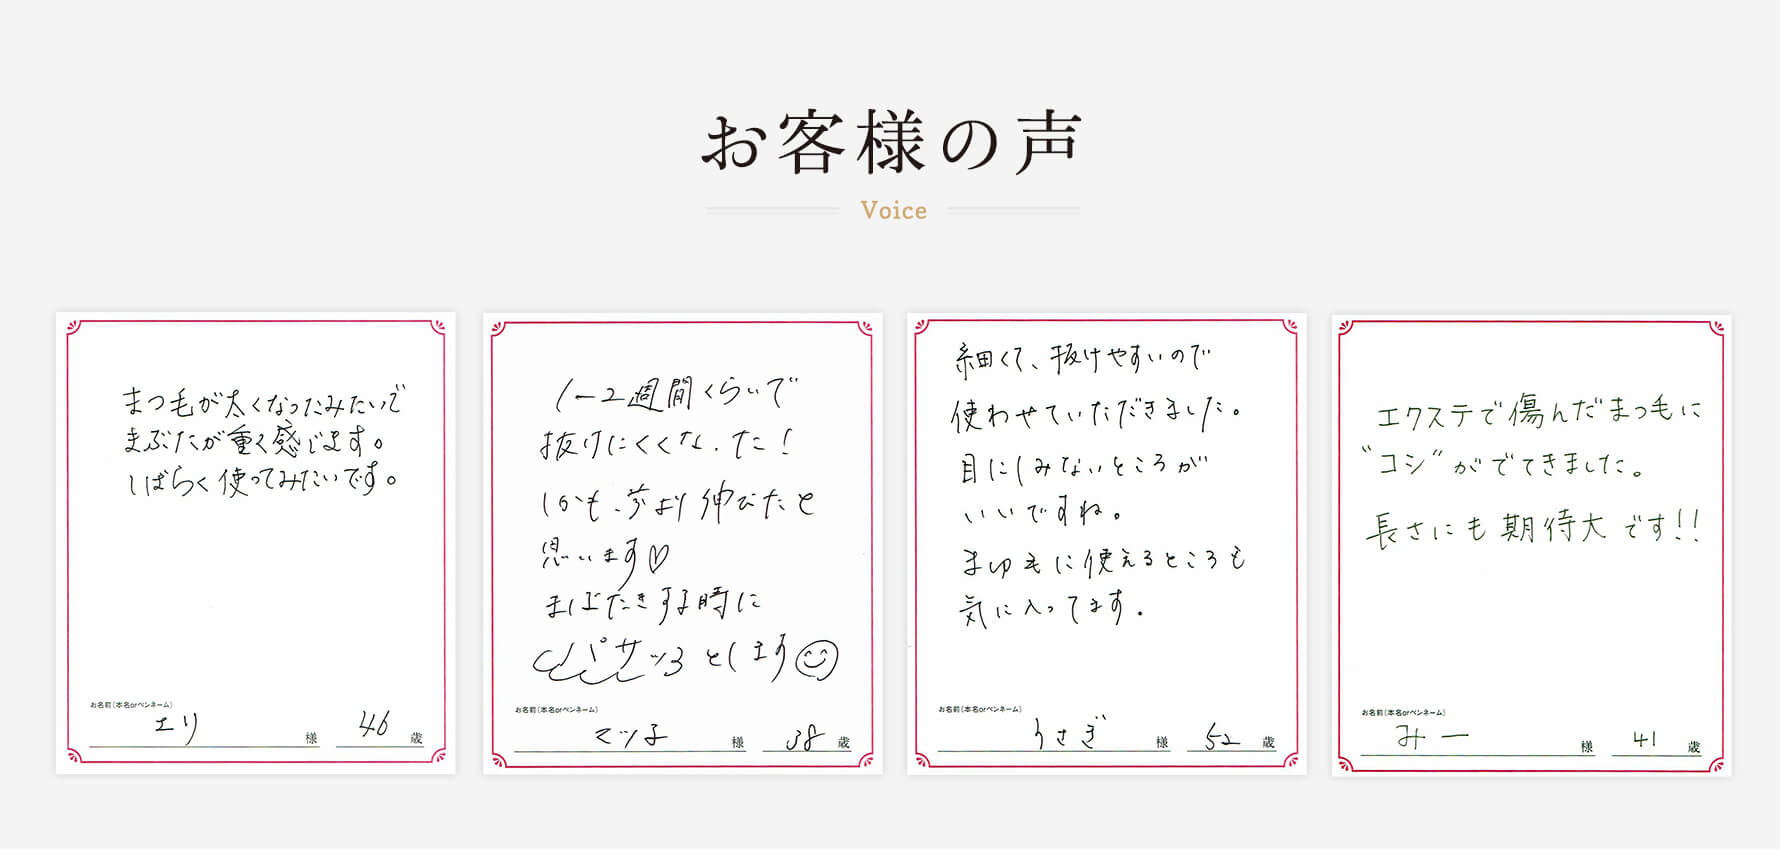 お客様の声
Voice
まつ毛が太くなったみたいで
まぶたが重く感じます。
しばらく使ってみたいです。
お名前(本名orペンネーム)
エリ 様 46 歳
1〜2週間くらいで
抜けにくくなった!
しかも、芽より伸びたと
思います♡
まばたきする時に
バサッとします☺
お名前(本名orペンネーム)
マツ子 様 38 歳
細くて、抜けやすいので
使わせていただきました。
目にしみないところが
いいですね。
まゆ毛に使えるところも
気に入ってます。
お名前(本名orペンネーム)
うさぎ 様 52 歳
エクステで傷んだまつ毛に
"コシ"がでてきました。
長さにも期待大です!!
お名前(本名orペンネーム)
みー 様 41 歳